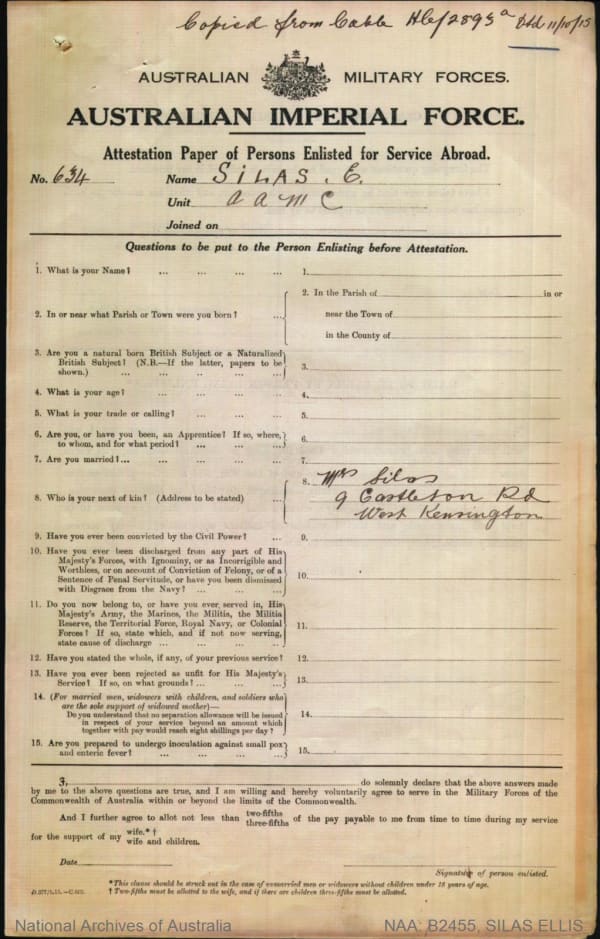 Copied from Cable HC/2893a Dtd 11/10/15
AUSTRALIAN MILITARY FORCES.
AUSTRALIAN IMPERIAL FORCE.
Attestation Paper of Persons Enlisted for Service Abroad.
No. 634 Name SILAS. E.
Unit A A M C
Joined on
Questions to be put to the Person Enlisting before Attestation.
1. What is your Name? ... ... ... ... 1.
2. In or near what Parish or Town were you born? ... 2. In the Parish of in or
near the Town of
in the County of
3. Are you a natural born British Subject or a Naturalized
British Subject? (N.B.—If the latter, papers to be
shown.) ... ... .. ... ... 3.
4. What is your age? ... ... ... ... 4.
5. What is your trade or calling? ... ... ... 5.
6. Are you, or have you been, an Apprentice? If so, where,
to whom, and for what period? ... ... ... 6.
7. Are you married? ... ... ... ... ... 7.
8. Who is your next of kin? (Address to be stated) ... 8. Mrs Silas
9 Castleton Rd
West Kensington
9. Have you ever been convicted by the Civil Power? ... 9.
10. Have you ever been discharged from any part of His
Majesty's Forces, with Ignominy, or as Incorrigible and
Worthless, or on account of Conviction of Felony, or of a
Sentence of Penal Servitude, or have you been dismissed
with Disgrace from the Navy? ... ... ... 10.
11. Do you now belong to, or have you ever served in, His
Majesty's Army, the Marines, the Militia, the Militia
Reserve, the Territorial Force, Royal Navy, or Colonial
Forces? If so, state which, and if not now serving,
state cause of discharge ... ... ... ... 11.
12. Have you stated the whole, if any, of your previous service? 12.
13. Have you ever been rejected as unfit for His Majesty's
Service? If so, on what grounds? ... ... ... 13.
14. (For married men, widowers with children, and soldiers who
are the sole support of widowed mother)—
Do you understand that no separation allowance will be issued
in respect of your service beyond an amount which
together with pay would reach eight shillings per day? 14.
15. Are you prepared to undergo inoculation against small pox
and enteric fever? ... ... ... ... 15.
I, do solemnly declare that the above answers made
by me to the above questions are true, and I am willing and hereby voluntarily agree to serve in the Military Forces of the
Commonwealth of Australia within or beyond the limits of the Commonwealth.
And I further agree to allot not less than two-fifths three-fifths of the pay payable to me from time to time during my service
for the support of my wife.* † wife and children.
Date
Signature of person enlisted.
*This clause should be struck out in the case of unmarried men or widowers without children under 18 years of age.
† Two-fifths must be allotted to the wife, and if there are children three-fifths must be allotted.
National Archives of Australia NAA: B2455, SILAS ELLIS